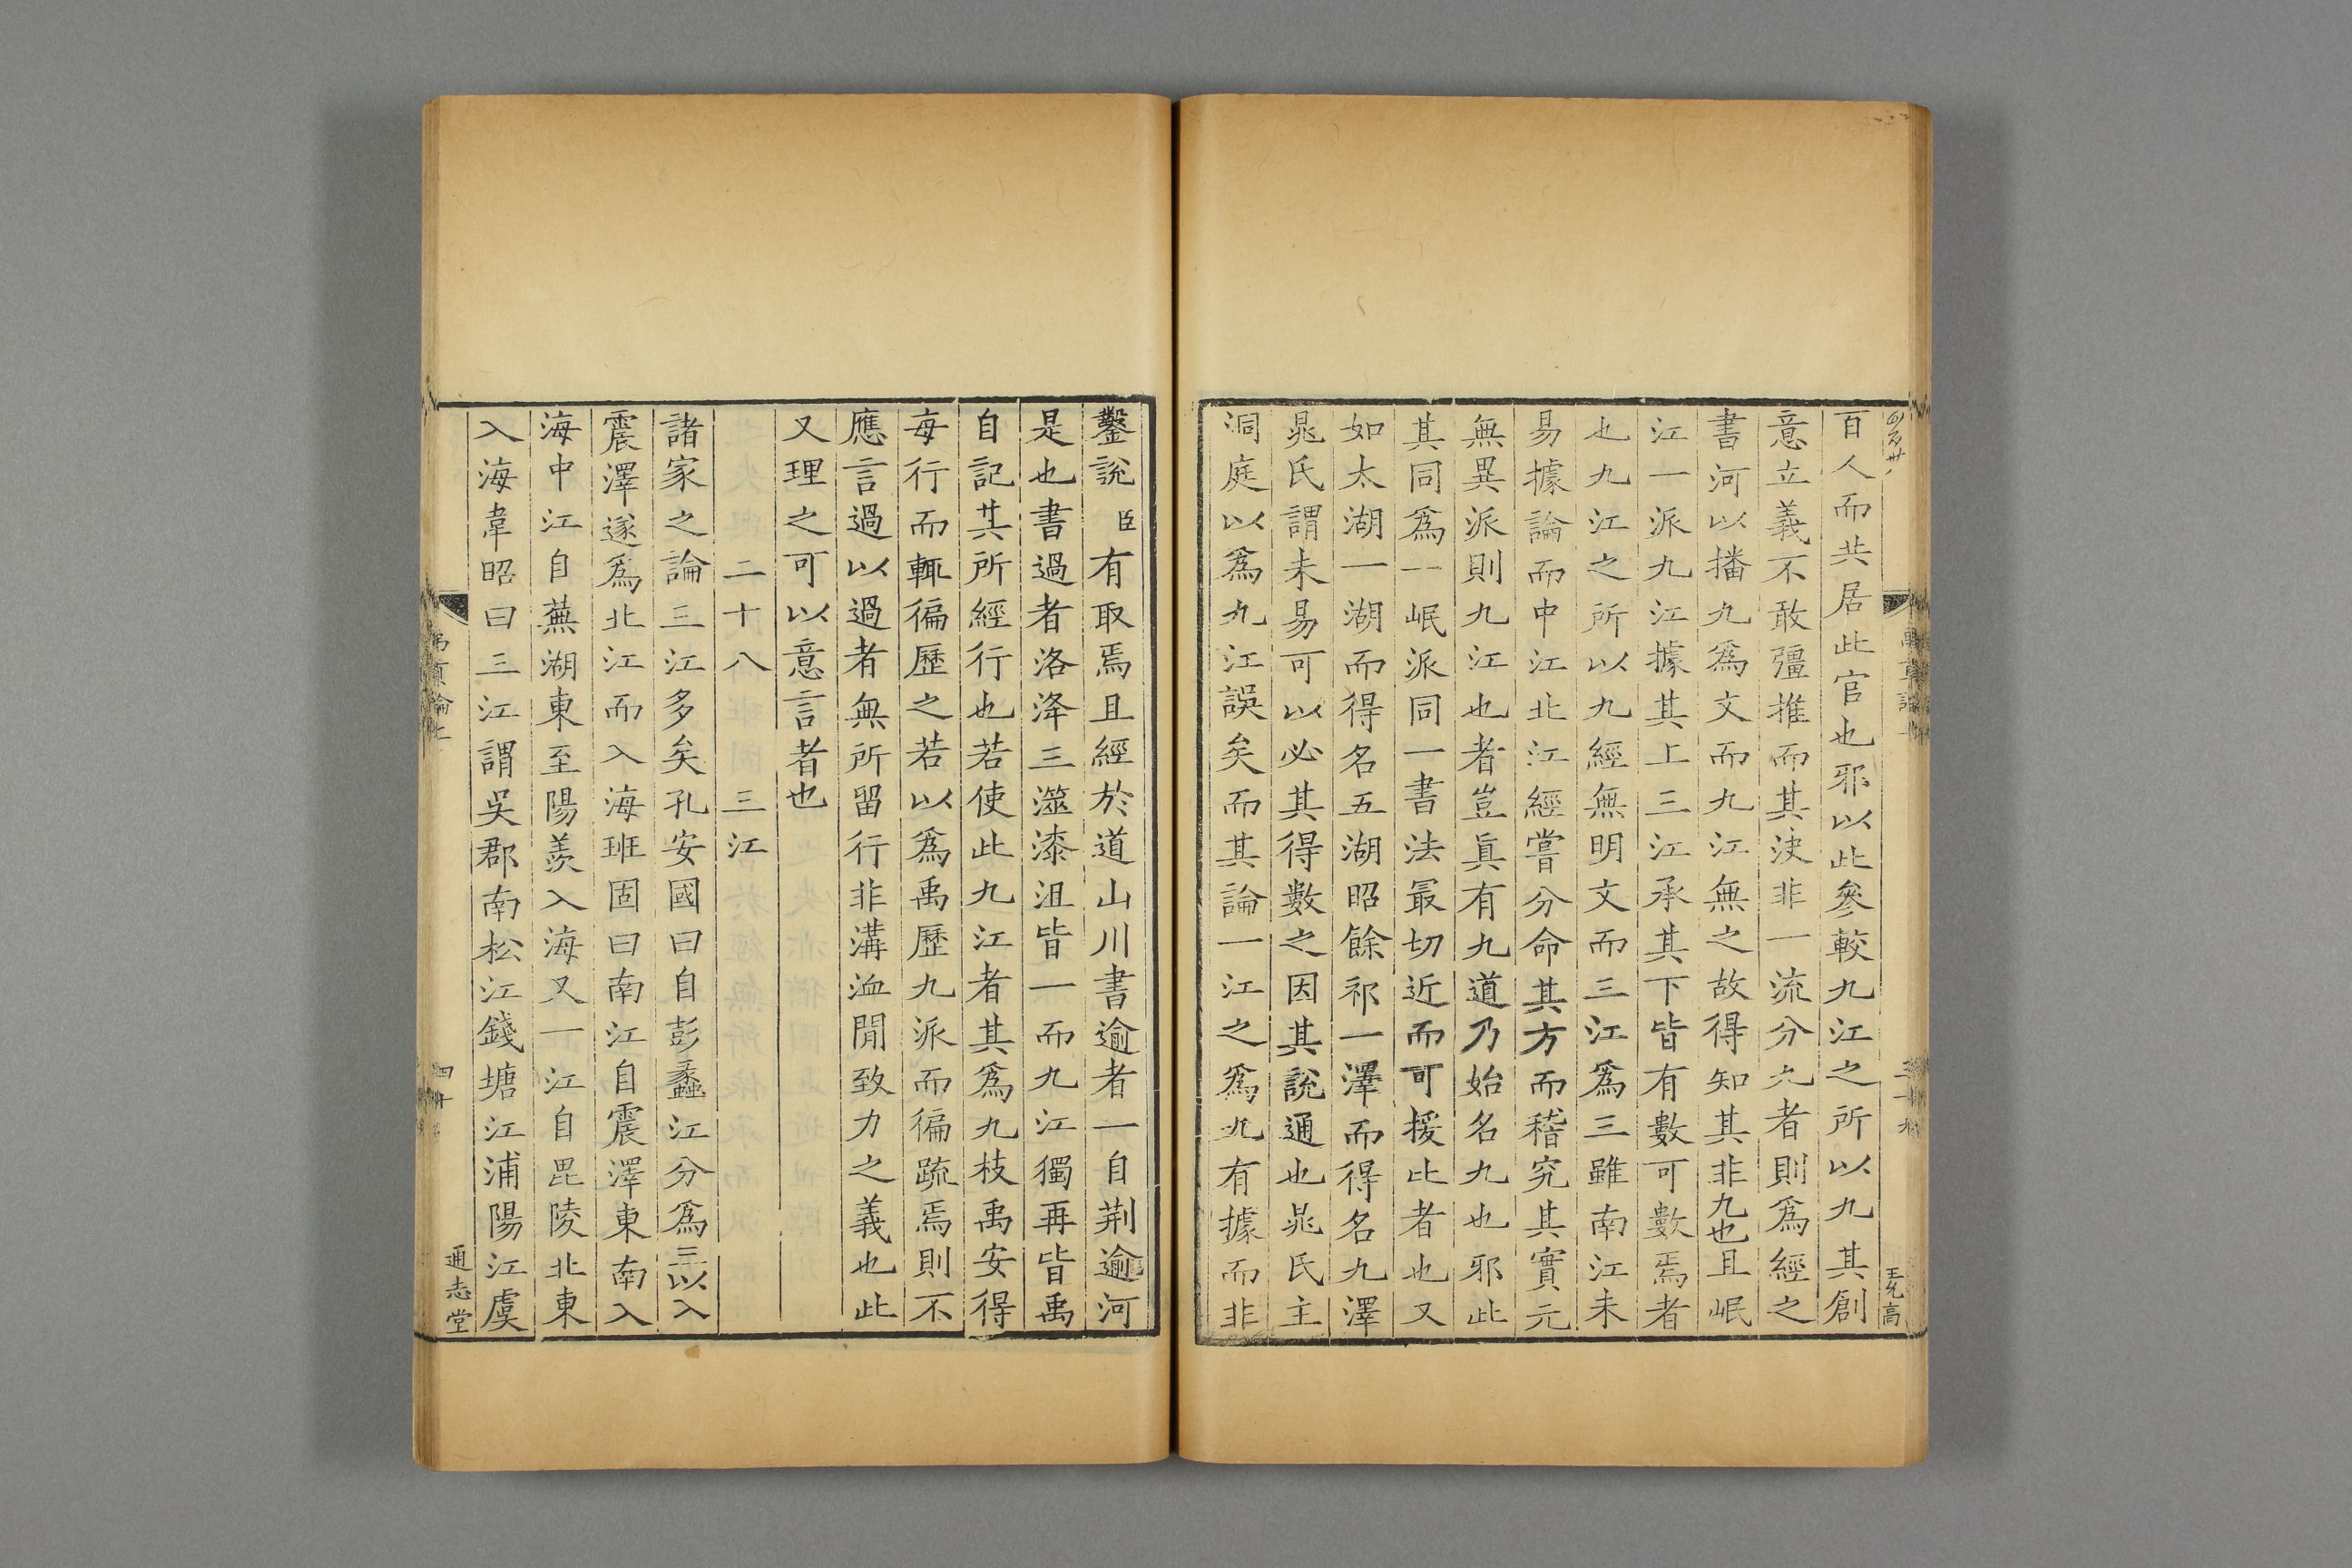 百人而共居此官也邪以此參較九江之所以九其創
意立義不敢彊推而其決非一流分九者則爲經之
書河以播九爲文而九江無之故得知其非九也且岷
江一派九江據其上三江承其下皆有數可數焉者
也九江之所以九經無明文而三江爲三雖南江未
易據論而中江北江經嘗分命其方而稽究其實元
無異派則九江也者豈眞有九道乃始名九也邪此
其同爲一岷派同一書法最切近而可援比者也又
如太湖一湖而得名五湖昭餘祁一澤而得名九澤
晁氏謂未易可以必其得數之因其說通也晁氏主
洞庭以爲九江誤矣而其論一江之爲九有據而非
鑿說臣有取焉且經於道山川書逾者一自荆逾河
是也書過者洛洚三澨漆沮皆一而九江獨再皆禹
自記其所經行也若使此九江者其爲九枝禹安得
每行而輒徧歷之若以爲禹歷九派而徧疏焉則不
應言過以過者無所留行非溝洫閒致力之義也此
又理之可以意言者也
二十八 三江
諸家之論三江多矣孔安國曰自彭蠡江分爲三以入
震澤遂爲北江而入海班固曰南江自震澤東南入
海中江自蕪湖東至陽羨入海又一江自毘陵北東
入海韋昭曰三江謂吳郡南松江錢塘江浦陽江虞
禹貢論上
四十
通志堂